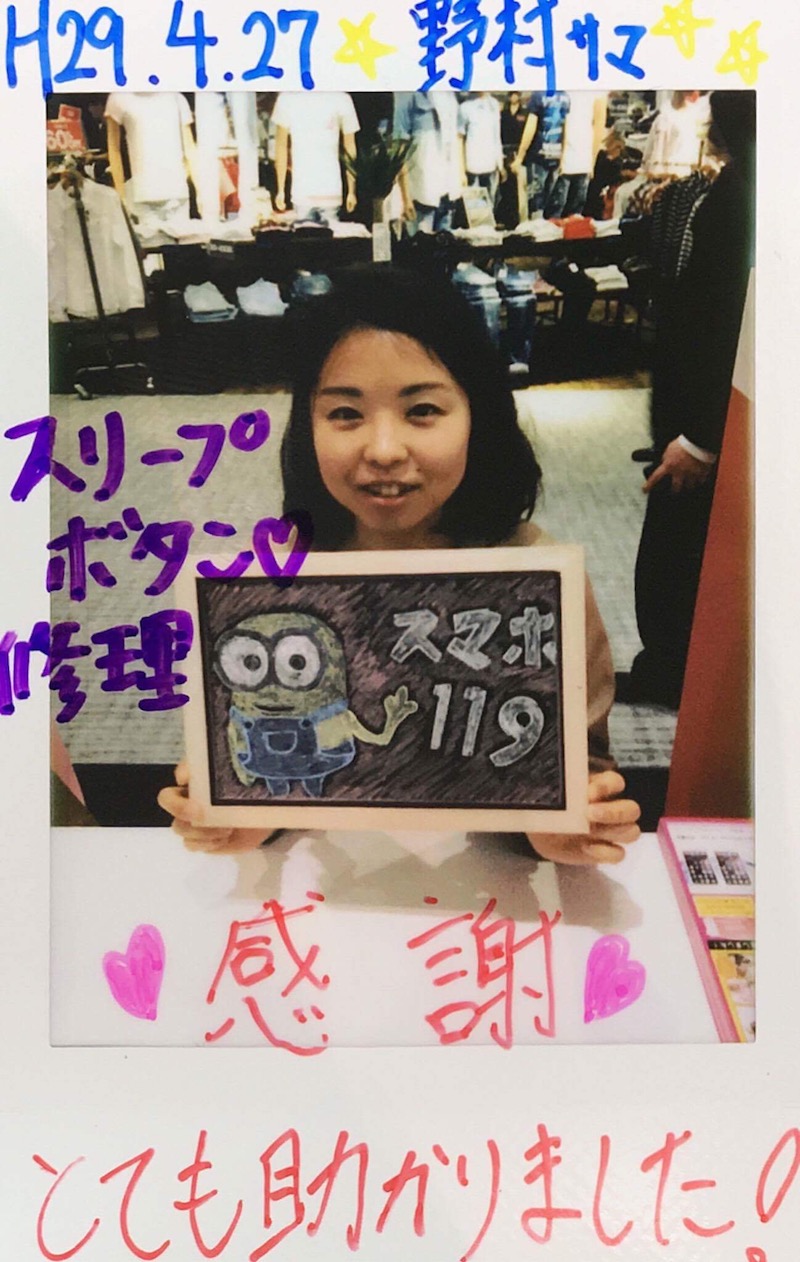 H29.4.27 野村サマ
スリープ
ボタン
修理
スマホ
119
感謝
とても助かりました!